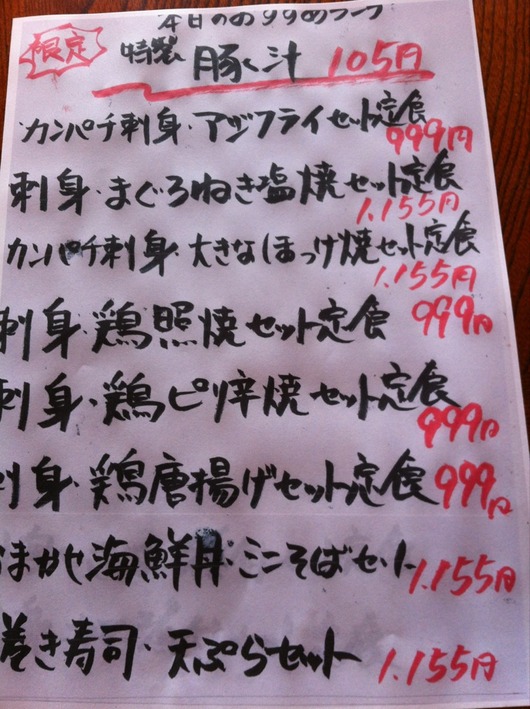 本日のおすすめランチ
限定
特製 豚汁 105円
カンパチ刺身・アジフライセット定食
999円
刺身・まぐろねぎ塩焼セット定食
1.155円
カンパチ刺身・大きなほっけ焼セット定食
1.155円
刺身・鶏照焼セット定食 999円
刺身・鶏ピリ辛焼セット定食
999円
刺身・鶏唐揚げセット定食 999円
おまかせ海鮮丼・ミニそばセット 1.155円
巻き寿司・天ぷらセット 1.155円